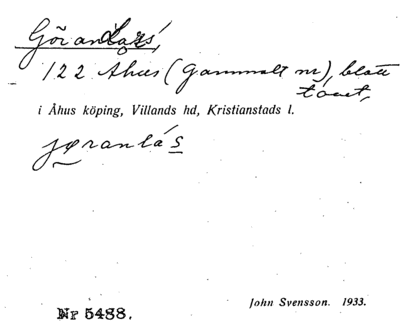 Göran Lars,
122 Åhus (Gammalt nr), blott
tomt,
i Åhus köping, Villands hd, Kristianstads l.
jøranlás
John Svensson. 1933.
Nr 5488.